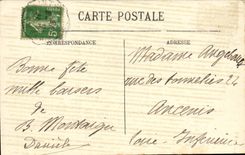 CARTE POSTALE
CORRESPONDANCE
ADRESSE
Madame
Bonne fête
mille baisers
de
B. Montaigu
Danièle
rue des Tonneliers 24
Ancenis
Loire-Inférieure